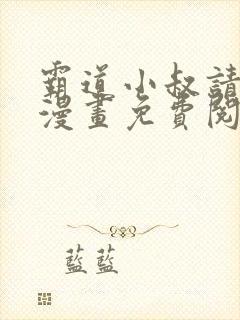 霸道小叔請
漫畫免費閱
藍藍